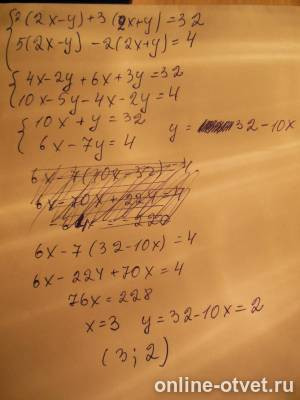 2(2x-y)+3(2x+y)=32
5(2x-y)-2(2x+y)=4
4x-2y+6x+3y=32
10x-5y-4x-2y=4
10x+y=32
6x-7y=4 y= 32-10x
6x-7(32-10x)=4
6x-224+70x=4
76x=228
x=3 y=32-10x=2
(3;2)
online-otvet.ru